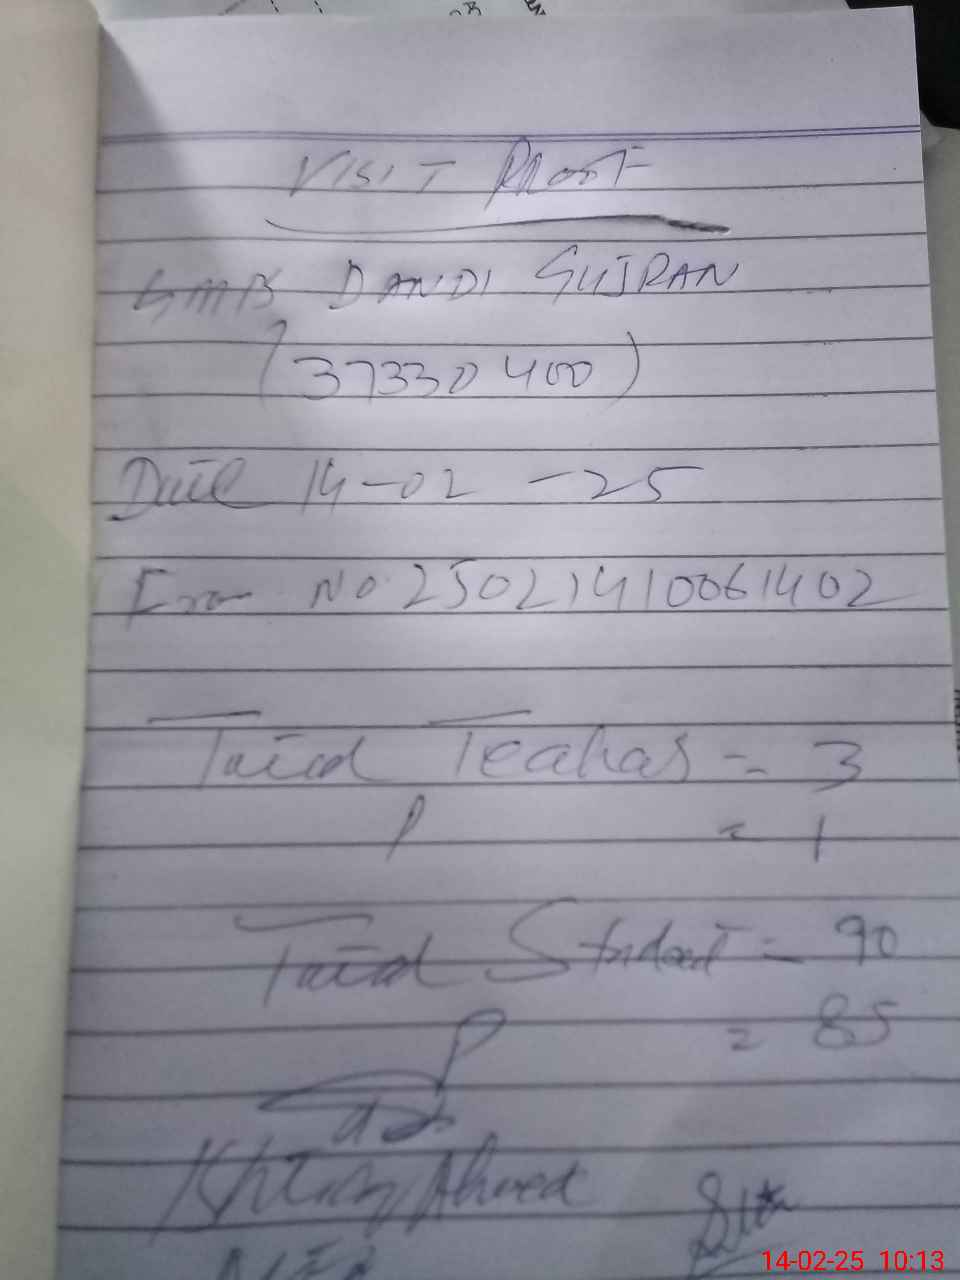 VISIT PROOF
GMB DANDI GUJRAN
(37330400)
Date 14-02-25
No. 25021410061402
Total Teachers = 3
P = 1
Total Student = 90
P = 85
Ahmed
14-02-25 10:13